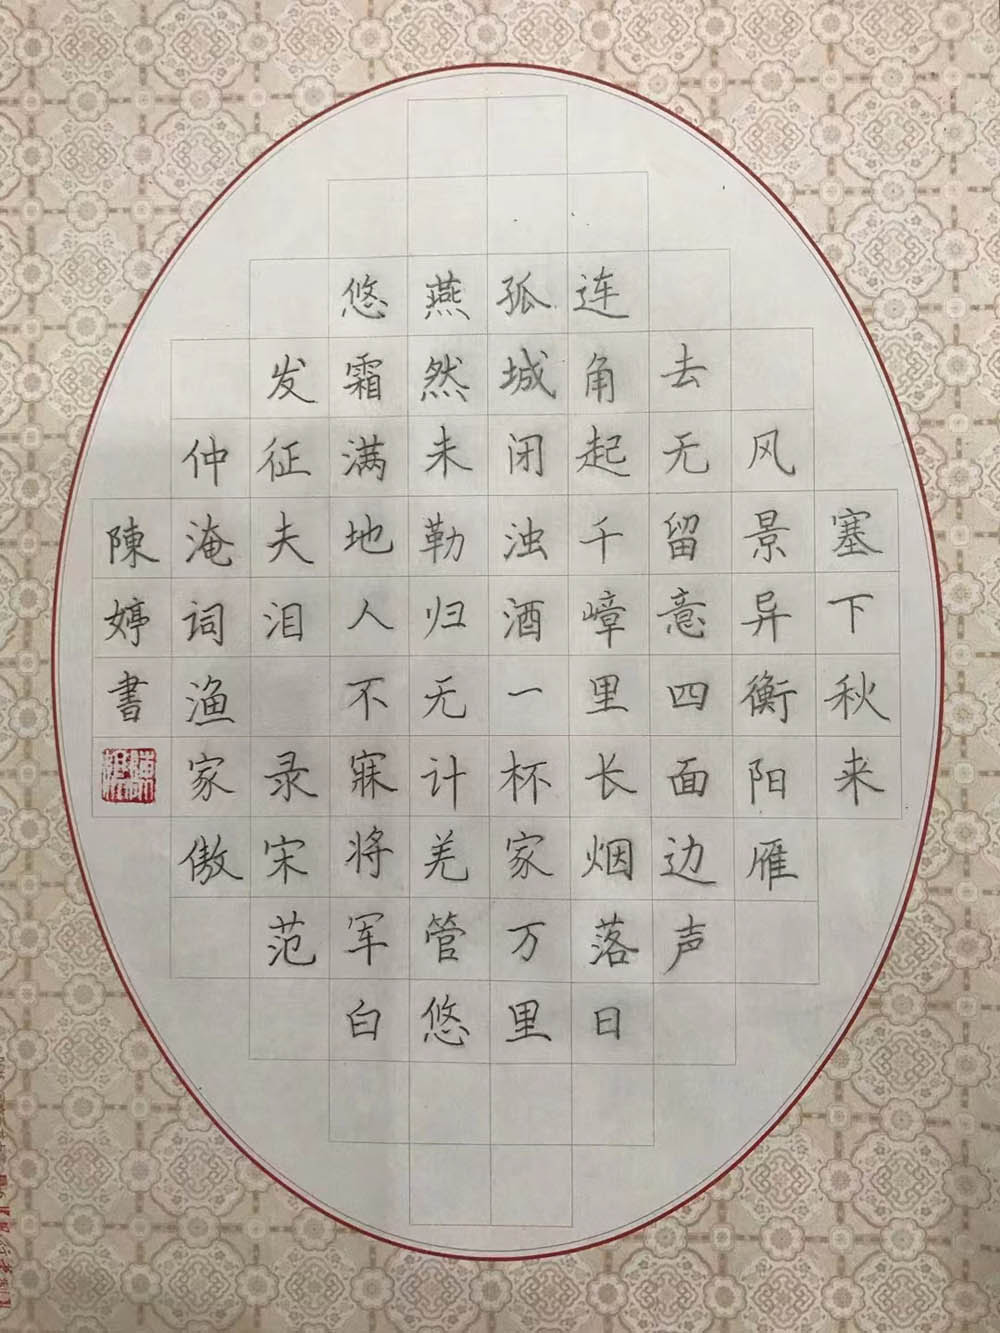 塞下秋来
风景异衡阳雁
去无留意四面边声
连角起千嶂里长烟落日
孤城闭浊酒一杯家万里
燕然未勒归无计羌管悠
悠霜满地人不寐将军白
发征夫泪 录宋范
仲淹词渔家傲
陳婷書